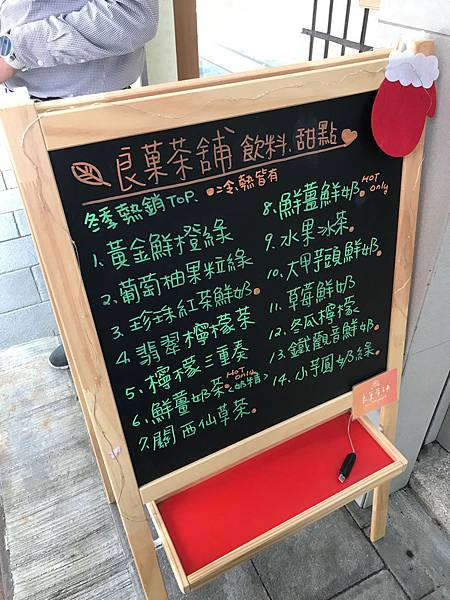 良菓茶舖 飲料.甜點
冬季熱銷TOP. ●冷.熱皆有
1.黃金鮮橙綠
2.葡萄柚果粒綠
3.珍珠紅茶鮮奶●
4.翡翠檸檬茶
5.檸檬三重奏
6.鮮薑奶茶●(奶精) HOT only
7.關西仙草茶●
8.鮮薑鮮奶● HOT only
9.水果冰茶●
10.大甲芋頭鮮奶●
11.草莓鮮奶
12.冬瓜檸檬
13.鐵觀音鮮奶●
14.小芋圓奶綠●
良菓茶舖